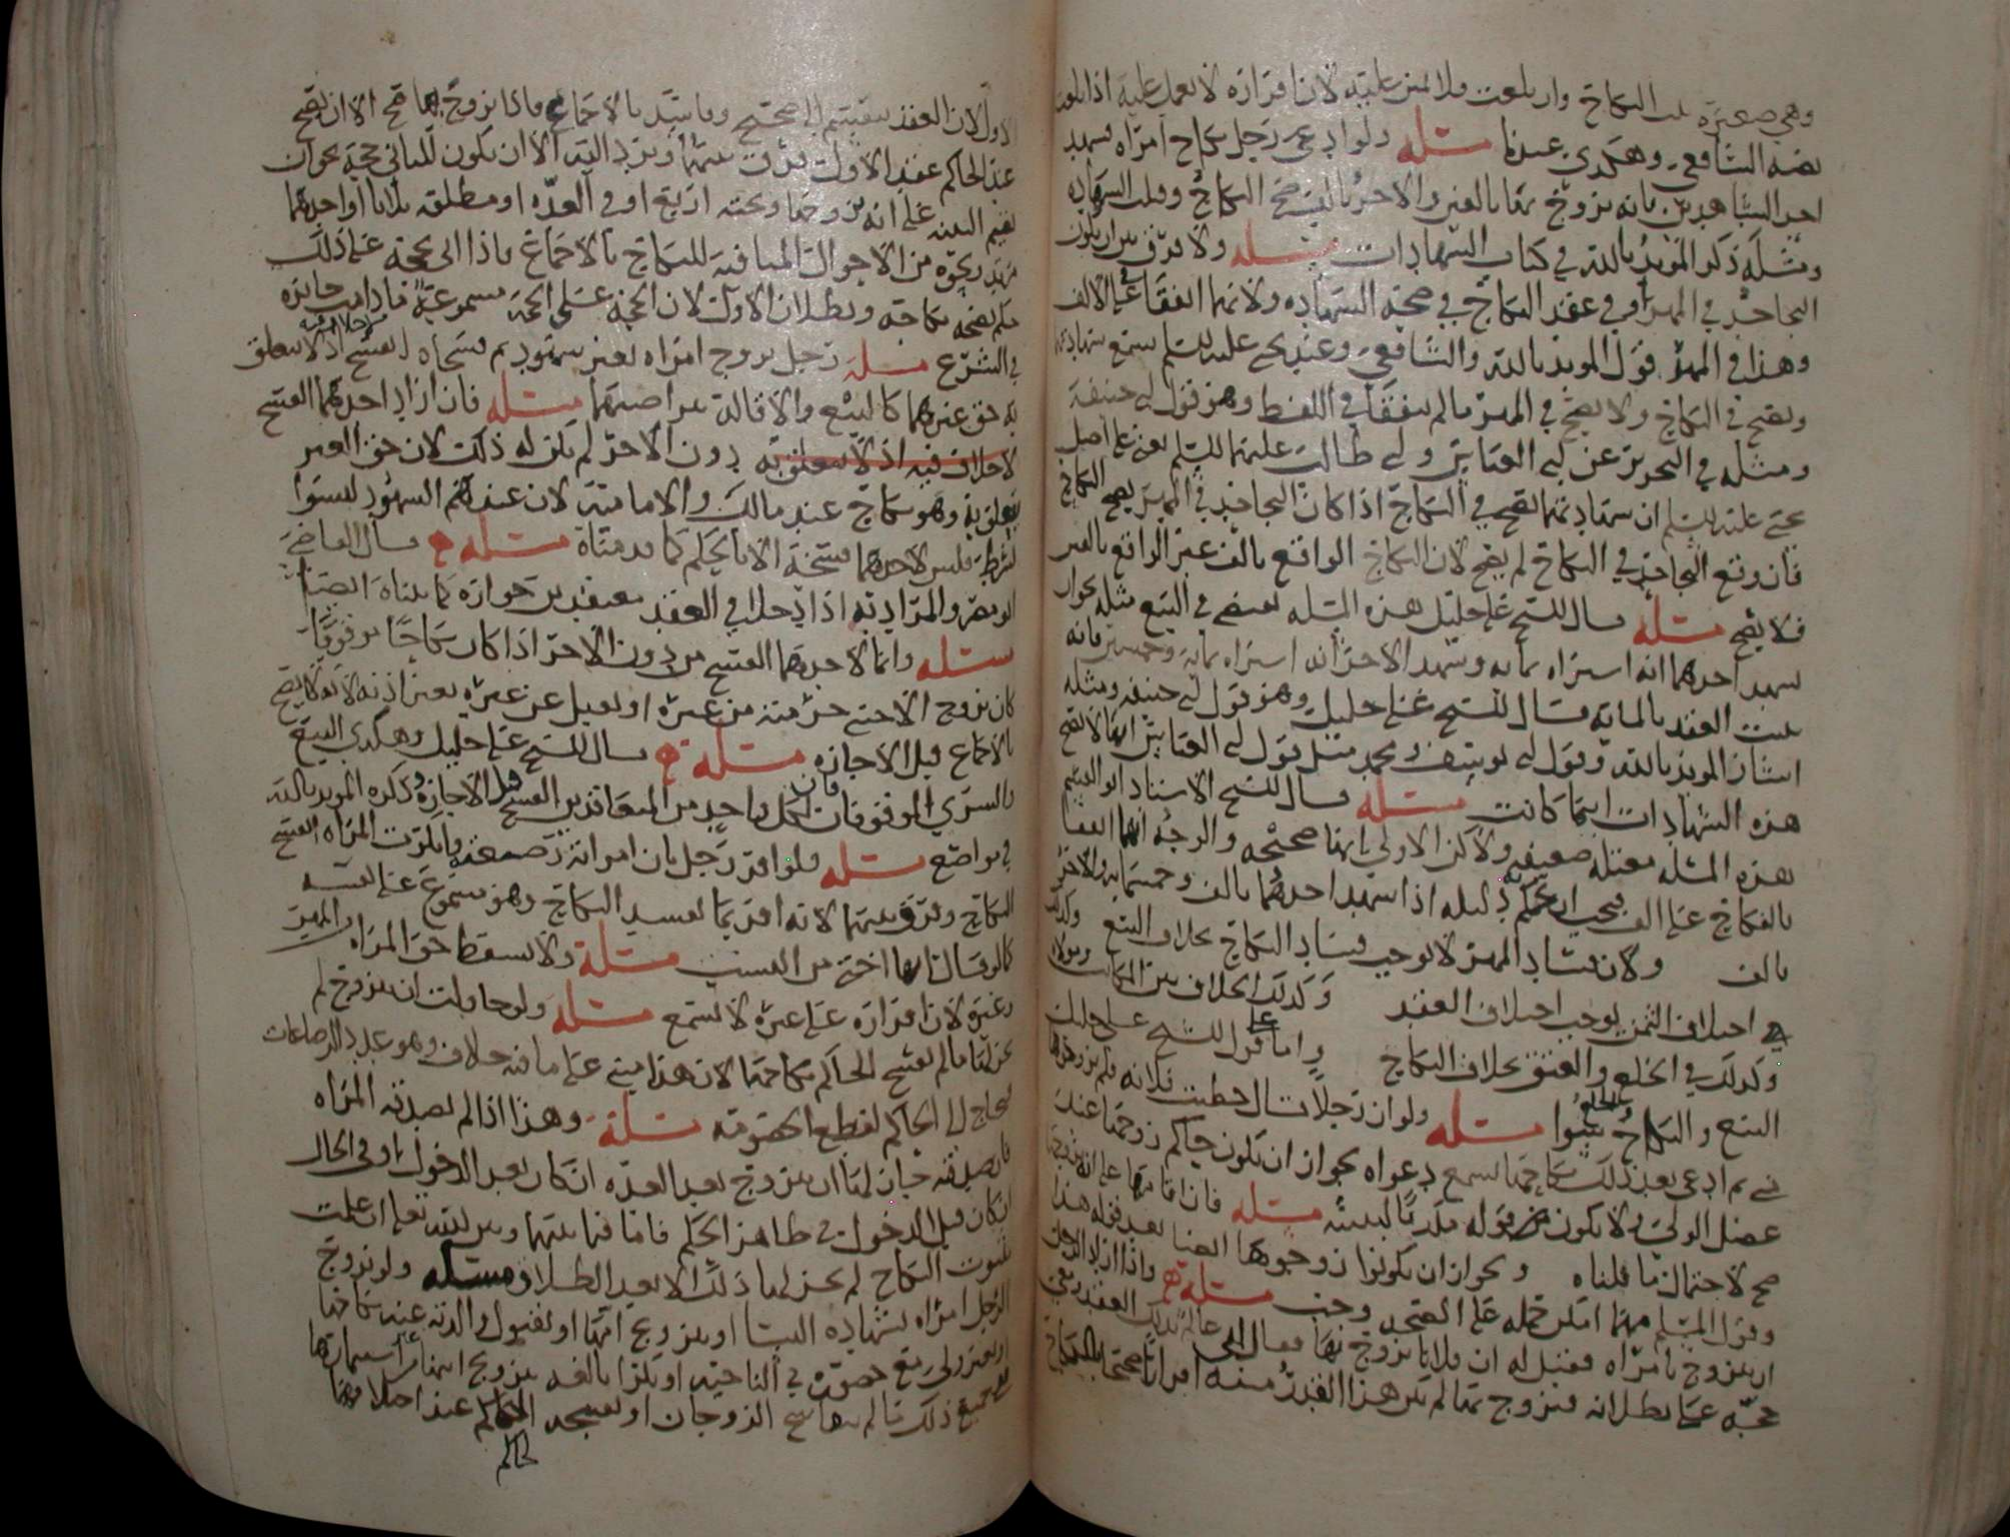 وهي صغيرة النكاح وان بلغت ولا يمين عليه لان اقراره لا يعمل عليه اذا بلغت
نصه الشافعي وهكذى عندنا مسئله ولو ادعى رجل نكاح امراه فشهد
احد الشاهدين بانه تزوج بها بالفين والاخر بالف صح النكاح وقبلت الشهاده
ومثله ذكر المؤيد بالله في كتاب الشهادات مسئله ولا فرق بين ان يكون
التجاحد في المهر او في عقد النكاح في صحة الشهاده ولانهما اتفقا على الالف
وهذا في المهر قول المؤيد بالله والشافعي وعند يحيى عليه السلم تسمع شهادتهما
وتصح في النكاح ولا تصح في المهر ما لم يتفقا في اللفظ وهو قول ابي حنيفة
ومثله في التحرير عن ابي العباس وابي طالب عليهما السلم يعني على اصل
يحيى عليه السلم ان شهادتهما تصح في النكاح اذا كان التجاحد في المهر يصح النكاح
فان وقع التجاحد في النكاح لم يصح لان النكاح الواقع بالف غير الواقع بالفين
فلا يصح مسئله قال الشيخ علي خليل هذه المسله تقتضي في البيع مثله نحو ان
شهد احدهما انه اشتراه بمايه وشهد الاخر انه اشتراه بمايه وخمسين فانه
يثبت العقد بالمايه قال الشيخ علي خليل وهو قول ابي حنيفه ومثله
اشار المؤيد بالله وقول ابي يوسف ومحمد مثل قول ابي العباس انها لا تصح
هذه الشهادات ايهما كانت مسئله قال الشيخ الاستاد ابو القسم
هذه المسله معتله ضعيفه ولاكن الاولى بانها صحيحه والوجه انهما اتفقا
بالنكاح على الف فيجب ان يحكم دليله اذا شهد احدهما بالف وخمسمايه والاخر
بالف ولان فساد المهر لا يوجب فساد النكاح بخلاف البيع وكذلك
في اختلاف الثمن يوجب اختلاف العقد وكذلك الخلاف بين
وكذلك في الخلع والعتق بخلاف النكاح واما على قول الشيخ علي خليل
البيع والنكاح والخلع سوا مسئله ولو ان رجلا قال خطبت فلانه فلم يزوجوها
مني ثم ادعى بعد ذلك نكاحها تسمع دعواه لجواز ان يكون حاكم زوجها عند
عضل الولي ولا يكون قوله مكذبا لبينته مسئله فان اقامها على انه تزوجها
صح لاحتمال ما قلناه ويجوز ان يكونوا زوجوها ايضا بعد قوله هذا
وقول المسلم مهما امكن حمله على الصحه وجب مسئله واذا اراد الرجل
ان يتزوج بامراه فقيل له ان فلانا تزوج بها فقال الي عالم بذلك العقد ومعي
حجه على بطلانه فتزوج بها لم يكن هذا القدر منه اقرارا بصحة النكاح
الاول لان العقد ينقسم الى صحيح وفاسد بالاجماع فاذا تزوج بها صح الا ان يصح
عند الحاكم عقد الاول فرق بينهما وترد اليه الا ان يكون للثاني حجه نحو ان
يقيم البينه على انه تزوجها وتحته اربع او في العده او مطلقه ثلاثا او احدهما
مرتد ونحوه من الاحوال المنافيه للنكاح بالاجماع فاذا اتى بحجه على ذلك
حكم بصحه نكاحه وبطلان الاول لان الحجه على الحجه مسموعة ما دامت جائزه
في الشرع مسئله رجل تزوج امراه بغير شهود ثم فسخاه انفسخ بلا خلاف فيه اذ لا يتعلق
به حق غيرهما كالبيع والاقالة بتراضيهما مسئله فان اراد احدهما الفسخ
لا خلاف فيه اذ لا يتعلق به دون الاخر لم يكن له ذلك لان حق الغير
يتعلق به وهو نكاح عند مالك والامامية لان عندهم الشهود ليسوا
بشرط فليس لاحدهما فسخه الا بالحكم كما قدمناه مسئله قال القاضي
ابو مضر والمراد به اذا دخلا في العقد معتقدين جوازه كما بيناه ايضا
مسئله وانما لاحدهما الفسخ من دون الاخر اذا كان نكاحا موقوفا
كان تزوج الاخت حرمته من غيره او يقبل عن غيره بغير اذنه لانه لا يصح
بالاجماع قبل الاجازه مسئله قال الشيخ علي خليل وهكذى البيع
والشرى الموقوفان فان لكل واحد من المتعاقدين الفسخ قبل الاجازه وذكره المؤيد بالله
في مواضع مسئله ولو اقر رجل بان امراته رضيعته وانكرت المراه انفسخ
النكاح وفرق بينهما لانه اقر بما يفسد النكاح وهو مسموع على نفسه
كما لو قال انها اختي من النسب مسئلة ولا يسقط حق المراه والمهر
وغيره لان اقراره على غيره لا يسمع مسئله ولو حاولت ان تتزوج لم
يجز لها ما لم يفسخ الحاكم نكاحها لان هذا مبني على ما فيه خلاف وهو عدد الرضاعات
فيحتاج الى الحاكم لقطع الخصومه مسئلة وهذا اذا لم تصدقه المراه
فان صدقته جاز لها ان تتزوج بعد العده ان كان بعد الدخول او في الحال
ان كان قبل الدخول في ظاهر الحكم فاما فيما بينها وبين الله تعالى ان علمت
ثبوت النكاح لم يحز لها ذلك الا بعد الطلاق مسئله ولو تزوج
الرجل امراه بشهاده النسا او بتزويج امها او بقبول والدته عند نكاحها
او بغير ولي مع حضوره في الناحيه او بكرا بالغه بتزويج ابيها من غير استيمارها
صح جميع ذلك ما لم يتفاسخ الزوجان او يفسخه الحاكم عند اختلافهما
الحاكم